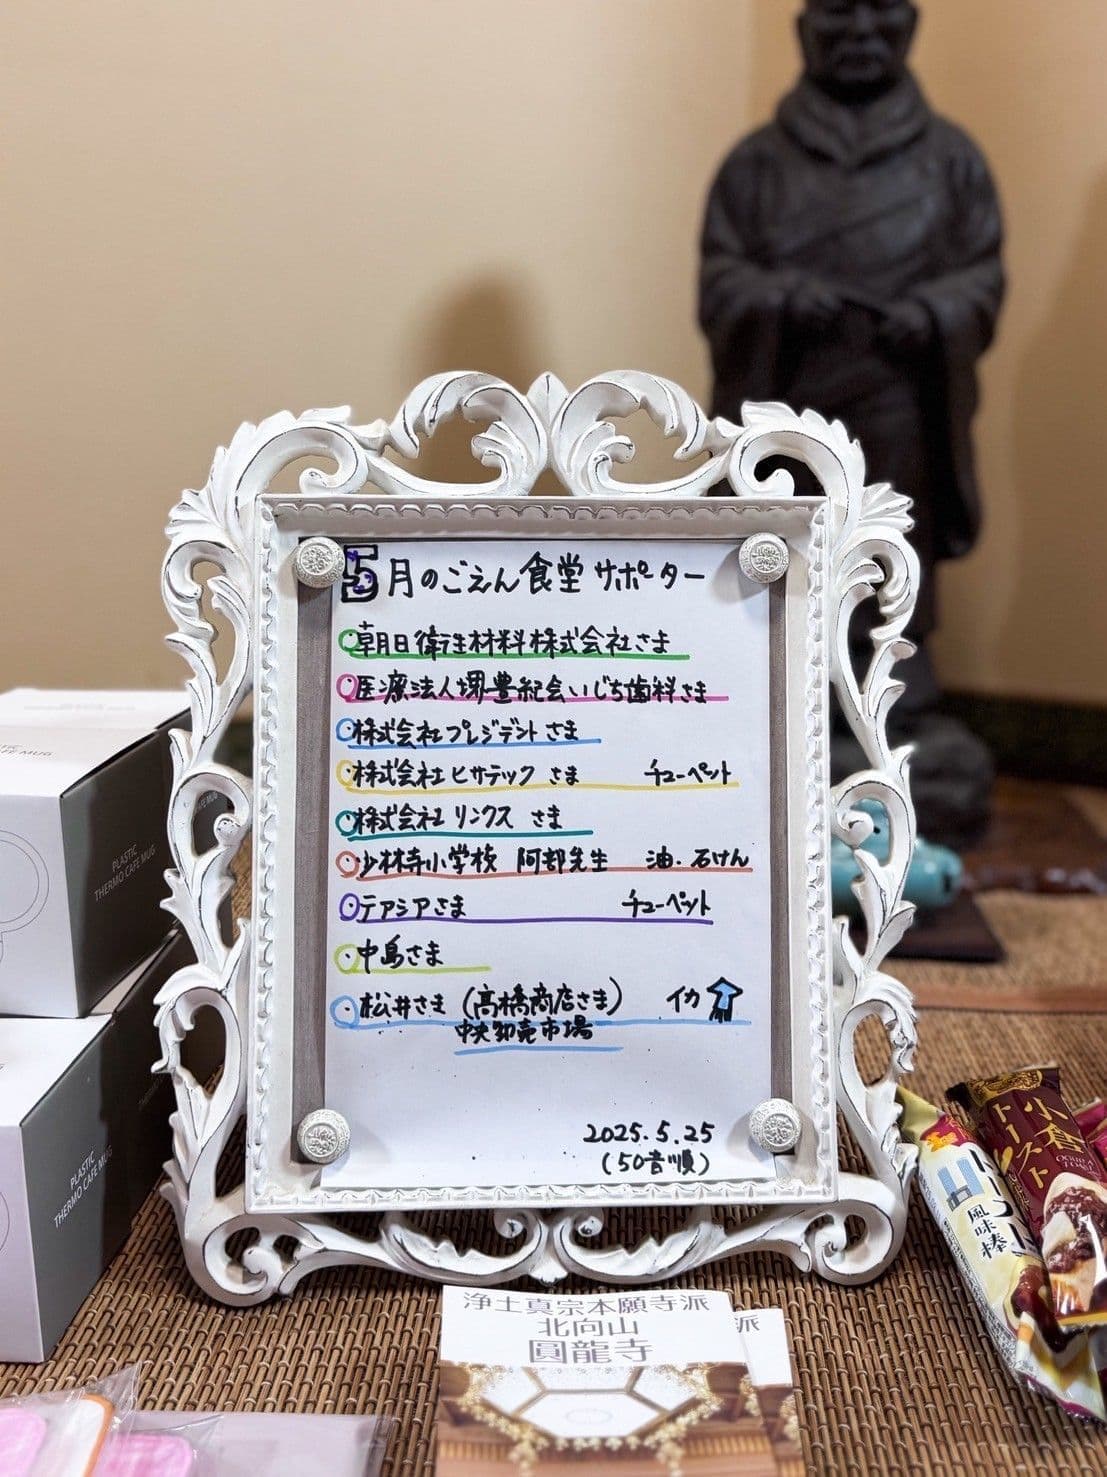 5月のごえん食堂サポーター
朝日衛生材料株式会社さま
医療法人堺豊紀会いじち歯科さま
株式会社プレジデントさま
株式会社ヒサテックさま チューペット
株式会社リンクスさま
少林寺小学校 阿部先生 油・石けん
テアシアさま チューペット
中島さま
松井さま(高橋商店さま) イカ
中央卸売市場
2025.5.25
(50音順)
浄土真宗本願寺派
北向山
圓龍寺
派
CAFE MUG
PLASTIC
THERMO CAFE MUG
PLASTIC
THERMO CAFE MUG
小倉
トースト
風味棒